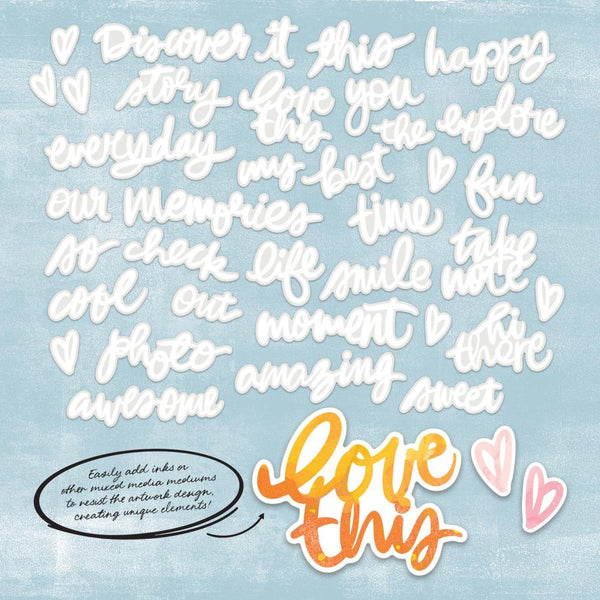 Discover it this happy
story love this you the explore
everyday my best fun
our memories time
so check life smile take note
cool out moment hi there
photo amazing
awesome sweet
Easily add inks or
other mixed media mediums
to resist the artwork design,
creating unique elements!
love
this